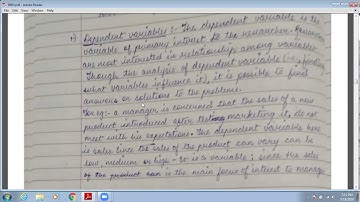 1) Dependent variables :- The dependent variable is the
variable of primary interest to the researcher. Researcher
are most interested in relationship among variables
Though the analysis of dependent variable (i.e., finding
what variables influence it), it is possible to find
answers or solutions to the problems.
for eg:- a manager is concerned that the sales of a new
product introduced after marketing it, do not
meet with his expectations. The dependent variable here
is sales since the sales of the product can vary can be
low, medium or high - so is a variable; since the sales
of the product is the main focus of interest to manager